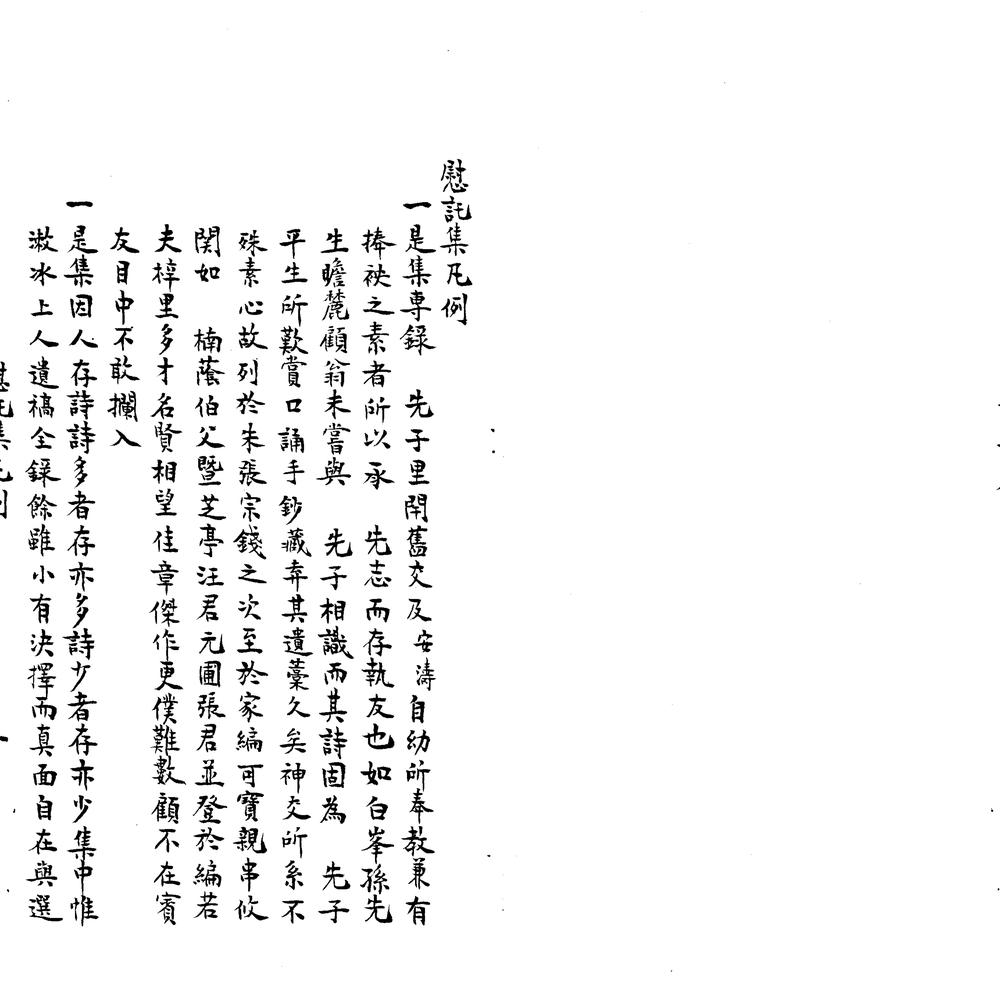 慰託集凡例
一是集專録　先子里閈舊交及安濤自幼所奉教兼有
捧袂之素者所以承　先志而存執友也如白峯孫先
生瞻麓顧翁未嘗與　先子相識而其詩固為　先子
平生所歎賞口誦手鈔藏弆其遺藁久矣神交所系不
殊素心故列於朱張宗錢之次至於家編可寶親串攸
関如　楠蔭伯父暨芝亭汪君元圃張君並登於編若
夫梓里多才名賢相望佳章傑作更僕難數顧不在賓
友目中不敢攔入
一是集因人存詩詩多者存亦多詩少者存亦少集中惟
漵水上人遺稿全録餘雖小有決擇而真面自在與選